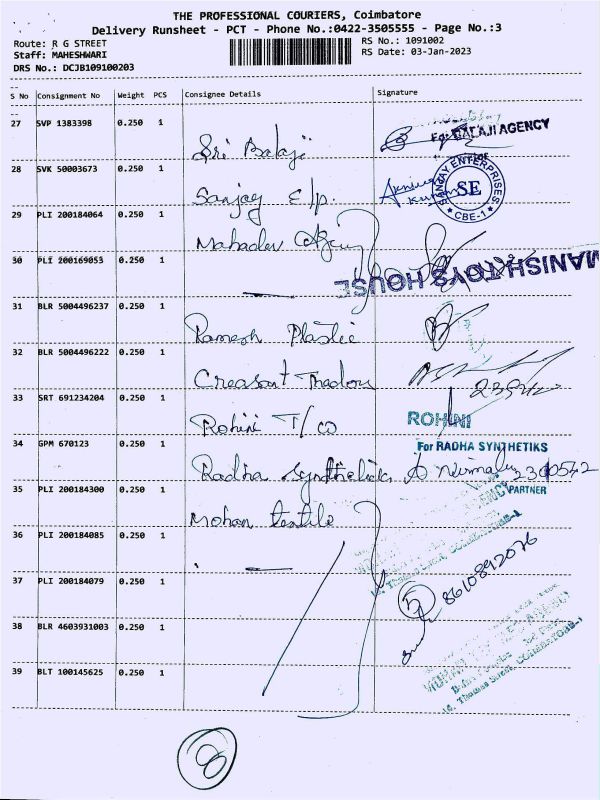 THE PROFESSIONAL COURIERS, Coimbatore
Delivery Runsheet - PCT - Phone No.:0422-3505555 - Page No.:3
Route: R G STREET
RS No.: 1091002
Staff: MAHESHWARI
RS Date: 03-Jan-2023
DRS No.: DCJB109100203
S No Consignment No Weight PCS Consignee Details Signature
27 SVP 1383398 0.250 1 Sri Balaji For BALAJI AGENCY
28 SVK 50003673 0.250 1 Sanjay E/p.
SANJAY ENTERPRISES
SE
CBE-1
29 PLI 200184064 0.250 1 Mahadev Agency
30 PLI 200169053 0.250 1
MANISH TOYS HOUSE
31 BLR 5004496237 0.250 1 Ramesh Plastic
32 BLR 5004496222 0.250 1 Creasant Tradon
33 SRT 691234204 0.250 1 Rohini T/co ROHINI
34 GPM 670123 0.250 1 Radha Synthetics
For RADHA SYNTHETIKS
PARTNER
35 PLI 200184300 0.250 1 Mohan textile
36 PLI 200184085 0.250 1
37 PLI 200184079 0.250 1
8610892076
38 BLR 4603931003 0.250 1
39 BLT 100145625 0.250 1
14, Thomas Street, COIMBATORE-1
8